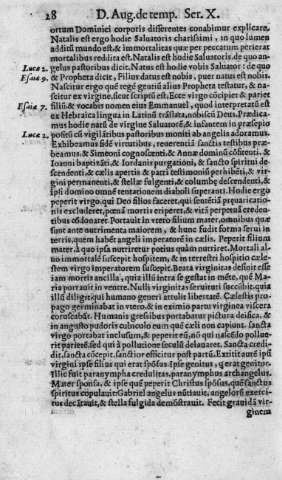 28 D. Aug. de temp. Ser. X.
ortum Dominici corporis differentes conabimur explicare.
Natalis est ergo hodie Saluatoris charissimi, in quo lumen
additũ mundo est, & immortalitas quæ per peccatum perierat
mortalibus reddita est. Natalis est hodie Saluatoris de quo an-
Luce 2. gelus pastoribus dicit. Natus est hodie vobis Saluator: de quo
Esaiæ 9. & Propheta dicit, Filius datus est nobis, puer natus est nobis.
Nascitur ergo quẽ regẽ gentiũ alius Propheta testatur, & na-
scitur de virgine, sicut scriptũ est. Ecce virgo cõcipiet & pariet
Esaiæ 7. filiũ & vocabis nomen eius Emmanuel, quod interpretatũ est
ex Hebraica lingua in Latinã trãslata, nobiscũ Deus. Prædica-
mus hodie natũ de virgine Saluatorẽ, & infantem in præsepio
Luce 2. positũ cũ vigilãtibus pastoribus moniti ab angelis adoratus.
Exhibeamus fidẽ virtutibus, reuerentiã sanctis testibus præ-
beamus, & Simeoni cognoscenti, & Annæ dominũ cõfitenti, &
Ioanni baptizãti, & Iordanis purgationi, & sancto spiritui de-
scendenti, & cælis apertis & patri testimoniũ perhibẽti, & vir-
gini permanenti, & stellæ fulgenti, & columbę descendenti, &
ipsi domino omnẽ tentationem diaboli superanti. Hodie ergo
peperit virgo, qui Deo filios faceret, qui sentẽtiã pręuaricatio-
nis excluderet, pœnã mortis eriperet, & vitã perpetuã credẽti-
bus donaret. Portauit in vtero filium mater, omnibus quæ
sunt ante nutrimenta maiorem, & hunc fudit forma serui in
terris, quem habẽt angeli imperatorẽ in cælis. Peperit filium
mater, à quo ipsa nutriretur potius quàm nutriret. Mortali al-
uo immortalẽ suscepit hospitem, & in terrestri hospitio cæle-
stem virgo Imperatorem suscepit. Beata virginitas definit esse
iam mortis ancilla, quia illi intera se gestat in mẽte, quẽ Ma-
ria portauit in ventre. Nulli virginitas seruituti succũbit, quia
illũ diligit qui humano generi attulit libertatẽ. Cælestis pro-
pago germinabat in vtero, & in eximio partu virginea viscera
coruscabãt. Humanis gressibus portabatur pictura deifica, &
in angusto pudoris cubiculo eum quẽ cæli non capiunt. Sancta
virgo portabat inclusum, & peperit eũ, nõ qui nascẽdo pollue-
ret pariẽtẽ, sed qui à pollutione seculũ delauaret. Sancta credi-
dit, sancta cõcepit, sanctior efficitur post partũ. Exitit autẽ ipsi
virgini ipse filius qui erat spõsus. Ipse genitus, qui erat genitor.
Illic fuit paranympha credulitas, paranymphus archangelus,
Mater sponsa, & ipse quẽ peperit Christus spõsus, quẽ sanctus
spiritus copulauit, Gabriel angelus nũtiauit, angelorũ exerci-
tus decãtauit, & stella fulgida demõstrauit. Fecit grauidã vir-
ginem